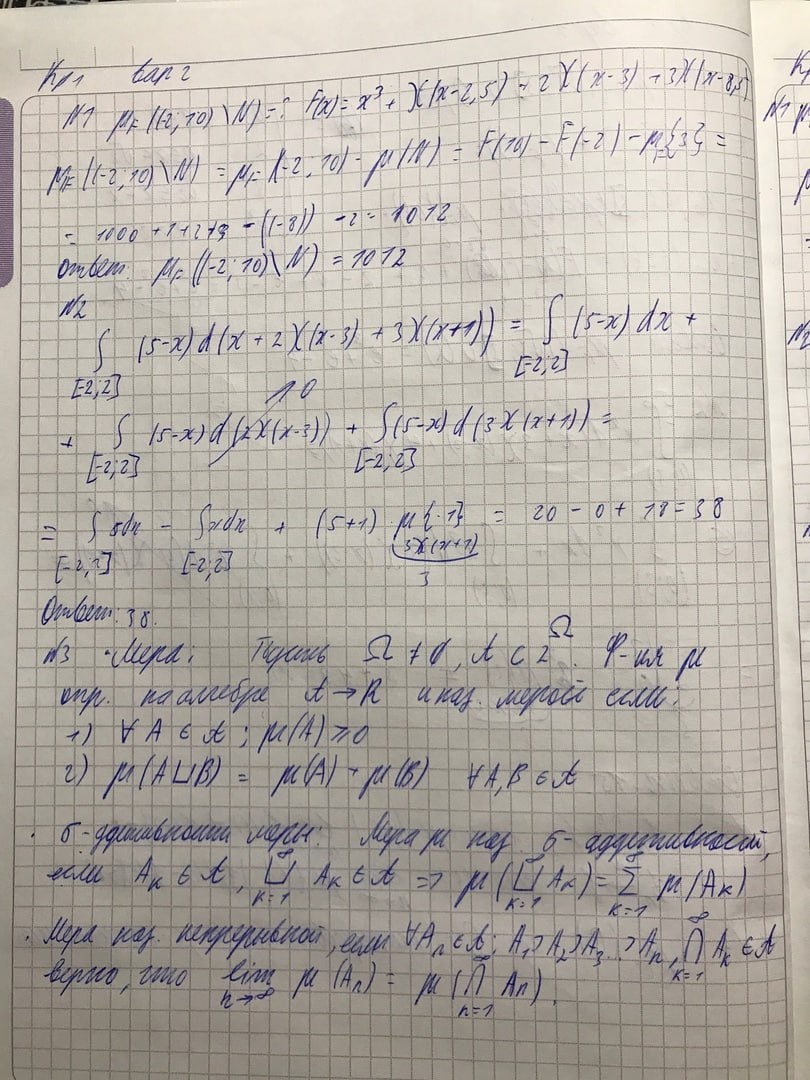 Кр1 вар 2
N1 μF((-2; 10) \ N) = ? F(x) = x³ + χ(x-2,5) + 2χ(x-3) + 3χ(x-8,5)
μF((-2; 10) \ N) = μF(-2; 10) - μ(N) = F(10) - F(-2) - μF{3} =
= 1000 + 1 + 2 + 3 - (-8)) - 2 = 1012
Ответ: μF((-2; 10) \ N) = 1012
N2
∫[-2;2] (5-x) d(x + 2χ(x-3) + 3χ(x+1)) = ∫[-2;2] (5-x) dx +
+ ∫[-2;2] (5-x) d(2χ(x-3)) + ∫[-2;2] (5-x) d(3χ(x+1)) =
0
= ∫[-2;2] 5dx - ∫[-2;2] xdx + (5+1) · μ{-1} = 20 - 0 + 18 = 38
3χ(x+1)
3
Ответ: 38.
N3 · Мера: Пусть Ω ≠ ∅, A ⊂ 2^Ω. Ф-ия μ
опр. на алгебре A → R и наз. мерой если:
1) ∀ A ∈ A; μ(A) ≥ 0
2) μ(A⊔B) = μ(A) + μ(B) ∀A,B ∈ A
· меры: Мера μ наз.
если Aк ∈ A, ⊔к=1^∞ Aк ∈ A => μ(⊔к=1^∞ Aк) = Σк=1^∞ μ(Aк)
· Мера наз. непрерывной, если ∀An ∈ A; A₁ ⊃ A₂ ⊃ A₃ .. ⊃ An, ∩к=1^∞ Aк ∈ A
верно, что lim n→∞ μ(An) = μ(∩n=1^∞ An).